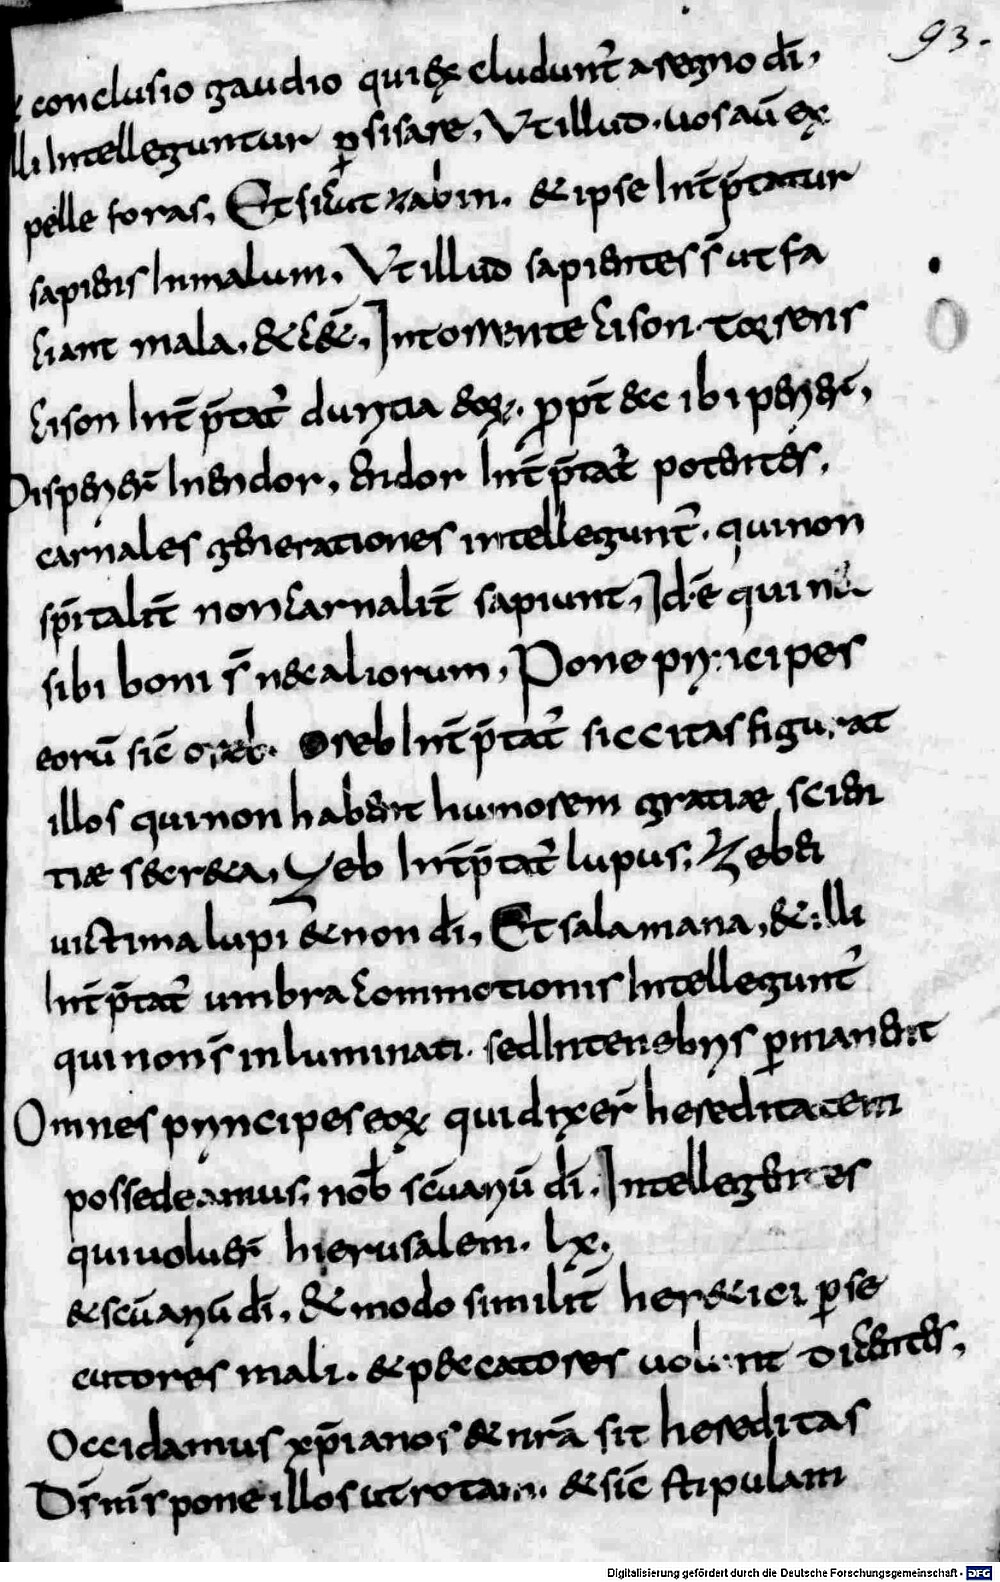 93.
conclusio gaudio qui excludunt̄ a regno dī,
illi intelleguntur p̱ sisare, Ut illud. uos aū ex
pelle foras, Et sicut zabin. & ipse int̄p̄tatur
sapiens in malum, Ut illud sapientes s̄ ut fa
ciant mala, & cet̄, In torrente cison. torrens
cison int̄p̄tat̄ duritia eoꝝ. propt̄ & ibi perier̄,
Disperier̄ in endor, endor int̄p̄tat̄ potentes,
carnales generationes intellegunt̄. qui non
sp̄italit̄ non carnalit̄ sapiunt, Id ē qui nec
sibi boni s̄ nec aliorum, Pone principes
eorū sic̄ oreb. Oreb int̄p̄tat̄ siccitas figurat
illos qui non habent humorem gratiæ scien
tiæ secreta, Zeb int̄p̄tat̄ lupus, Zebei
uictima lupi & non dī, Et salamana, & illi
int̄p̄tat̄ umbra commotionis intellegunt̄
qui non s̄ inluminati. sed in tenebris p̱manent
Omnes principes eoꝝ qui dixer̄ hereditatem
possedeamus, nob̄ sc̄uariū dī. Intellegentes
qui uoluer̄ hierusalem. lxx.
& sc̄uariū dī, & modo similit̄ heretici p̱se
cutores mali. & peccatores uolunt dicentes,
Occidamus xp̄ianos & nr̄a sit hereditas
Ds̄ ms̄ pone illos ut rotam. & sic̄ stipulam
Digitalisierung gefördert durch die Deutsche Forschungsgemeinschaft - DFG